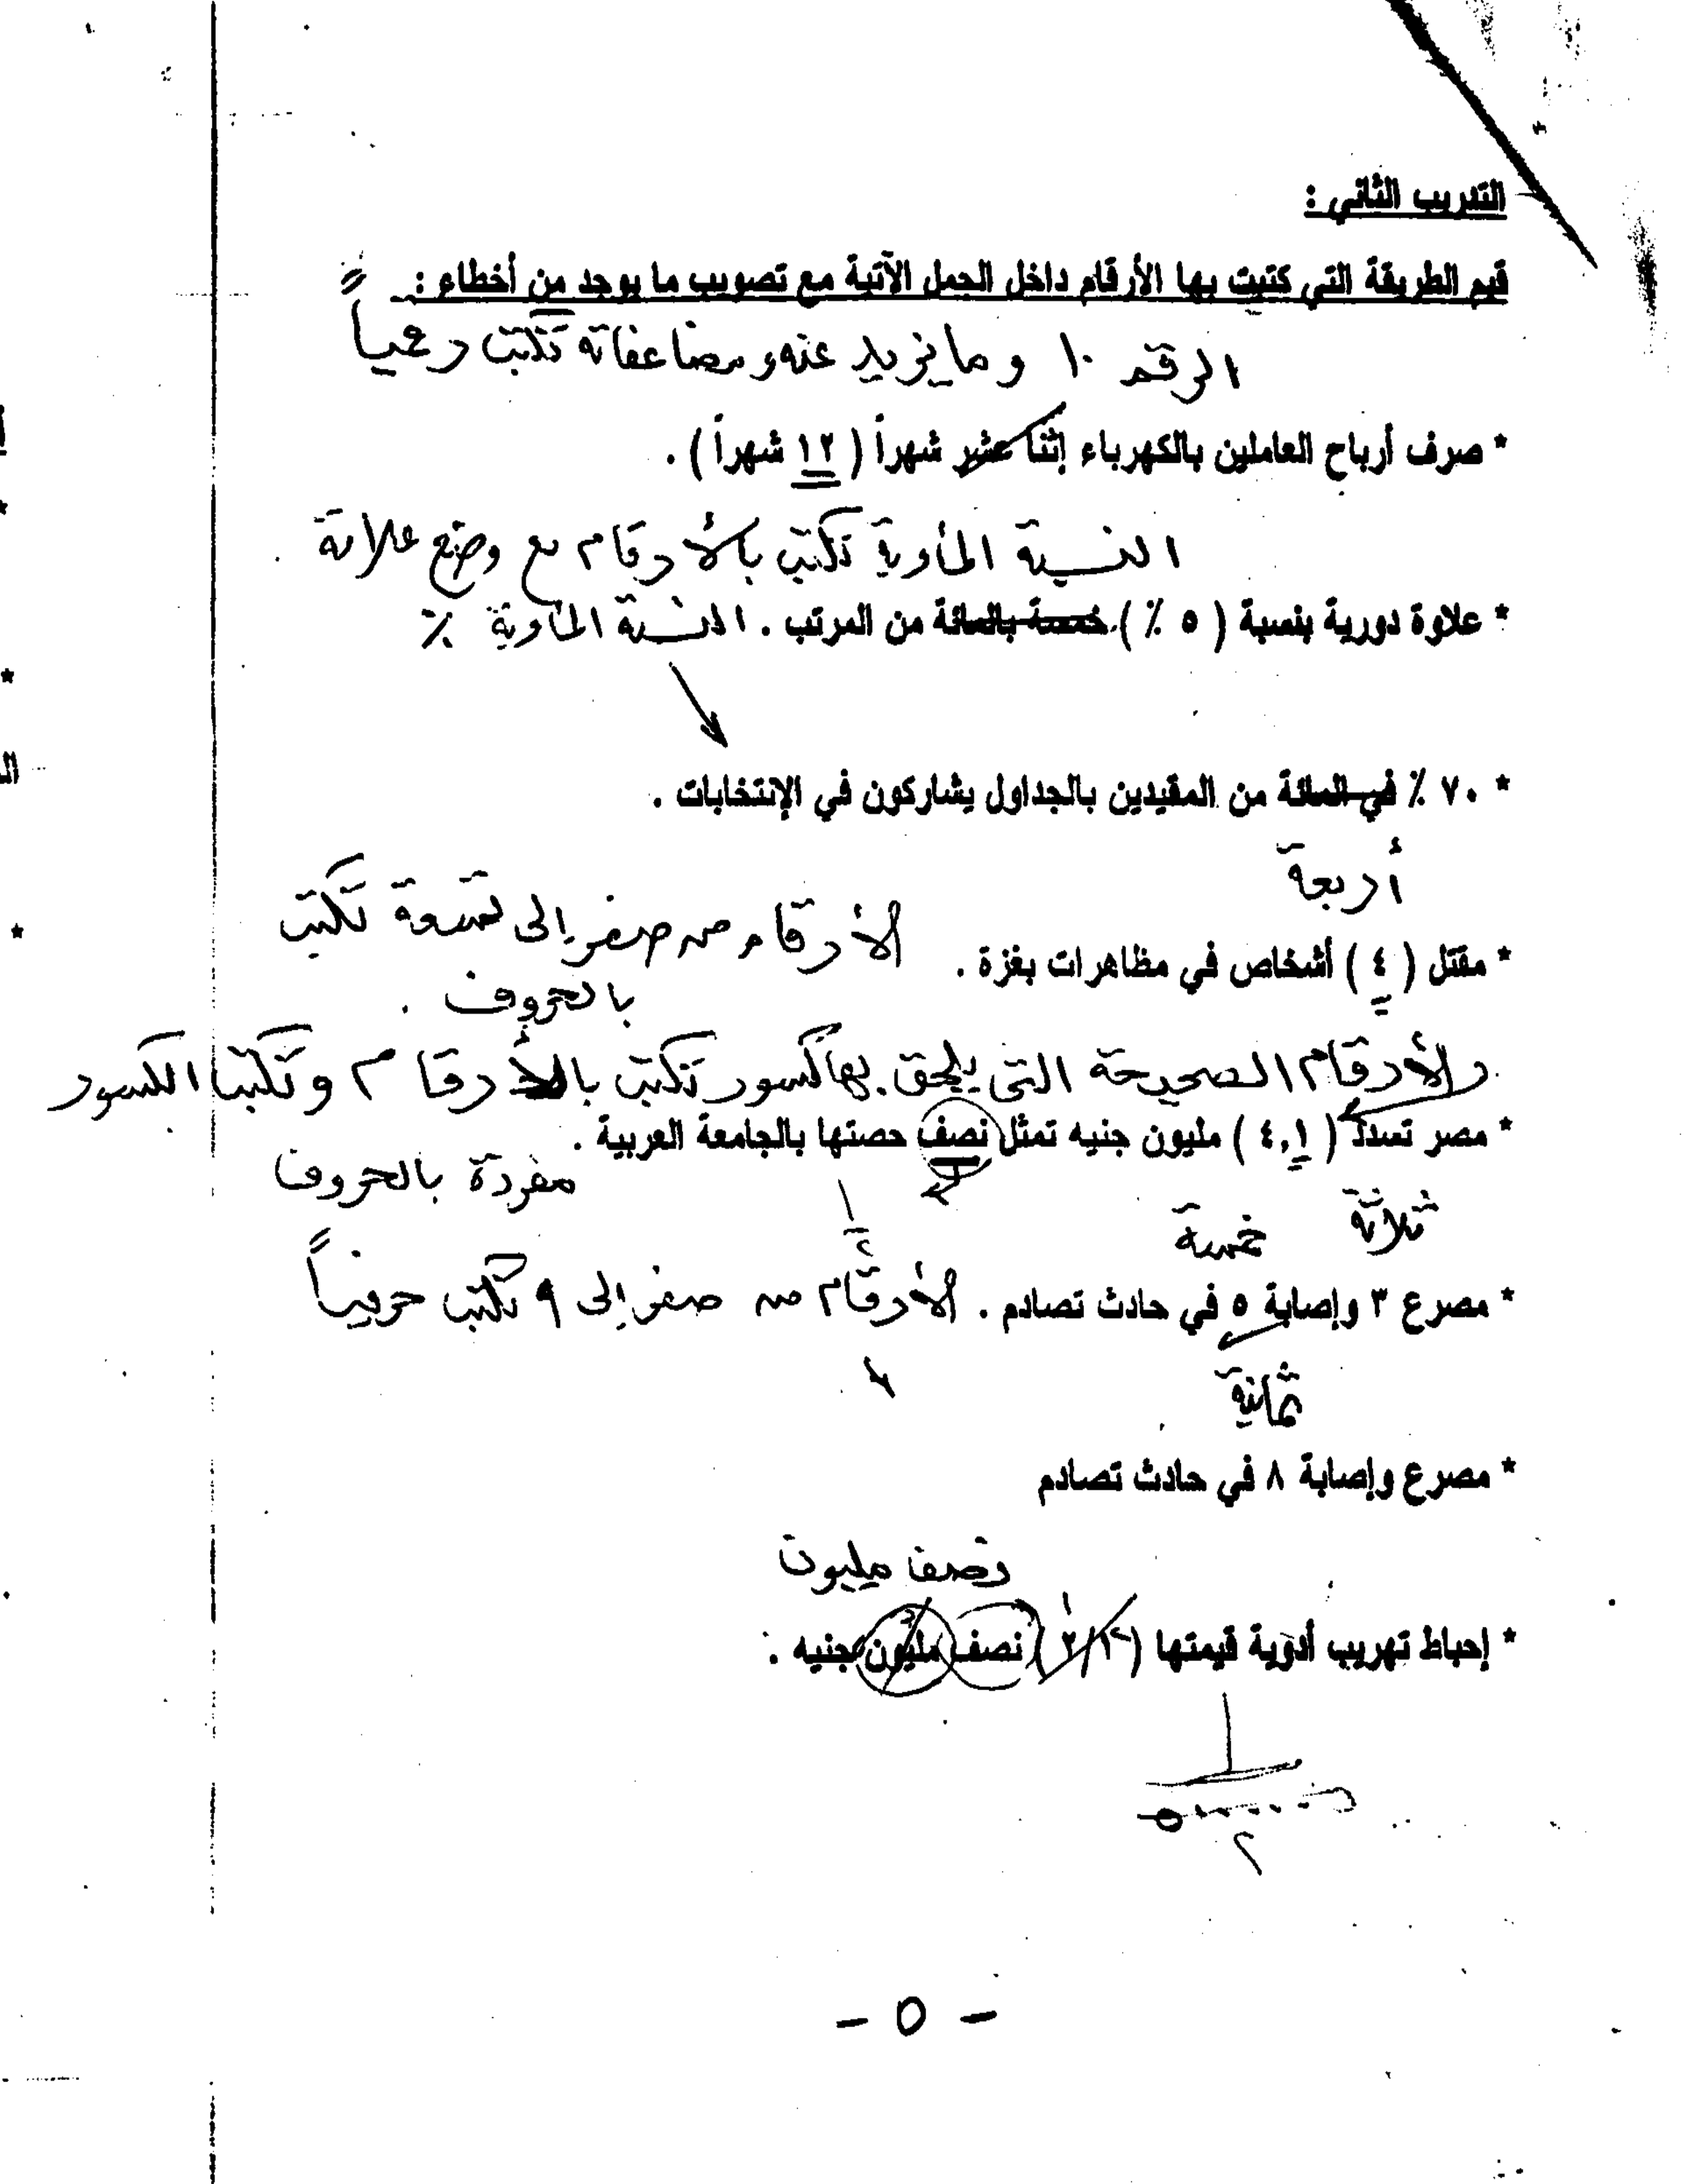 التدريب الثاني :
قيم الطريقة التي كتبت بها الأرقام داخل الجمل الآتية مع تصويب ما يوجد من أخطاء :
الرقم ١٠ وما يزيد عنه ومضاعفاته تكتب رقمياً
* صرف أرباح العاملين بالكهرباء إثنا عشر شهراً ( ١٢ شهراً ) .
النسبة المأوية تكتب بالأرقام مع وضع علامة
* علاوة دورية بنسبة ( ٥ ٪ ) خمسة بالمائة من المرتب . النسبة المأوية ٪
* ٧٠ ٪ في المائة من المقيدين بالجداول يشاركون في الإنتخابات .
أربعة
* مقتل ( ٤ ) أشخاص في مظاهرات بغزة . الأرقام من صفر إلى تسعة تكتب
بالحروف .
والأرقام الصحيحة التى يلحق بها كسور تكتب بالأرقام وتكتب الكسور
* مصر تسدد ( ٤,١ ) مليون جنيه تمثل نصف حصتها بالجامعة العربية .
مفردة بالحروف
١/٢
ثلاثة خمسة
* مصرع ٣ وإصابة ٥ في حادث تصادم . الأرقام من صفر إلى ٩ تكتب حرفياً
ثمانية
* مصرع وإصابة ٨ في حادث تصادم
نصف مليون
* إحباط تهريب أدوية قيمتها ( ١/٢ ) نصف مليون جنيه .
- ٥ -